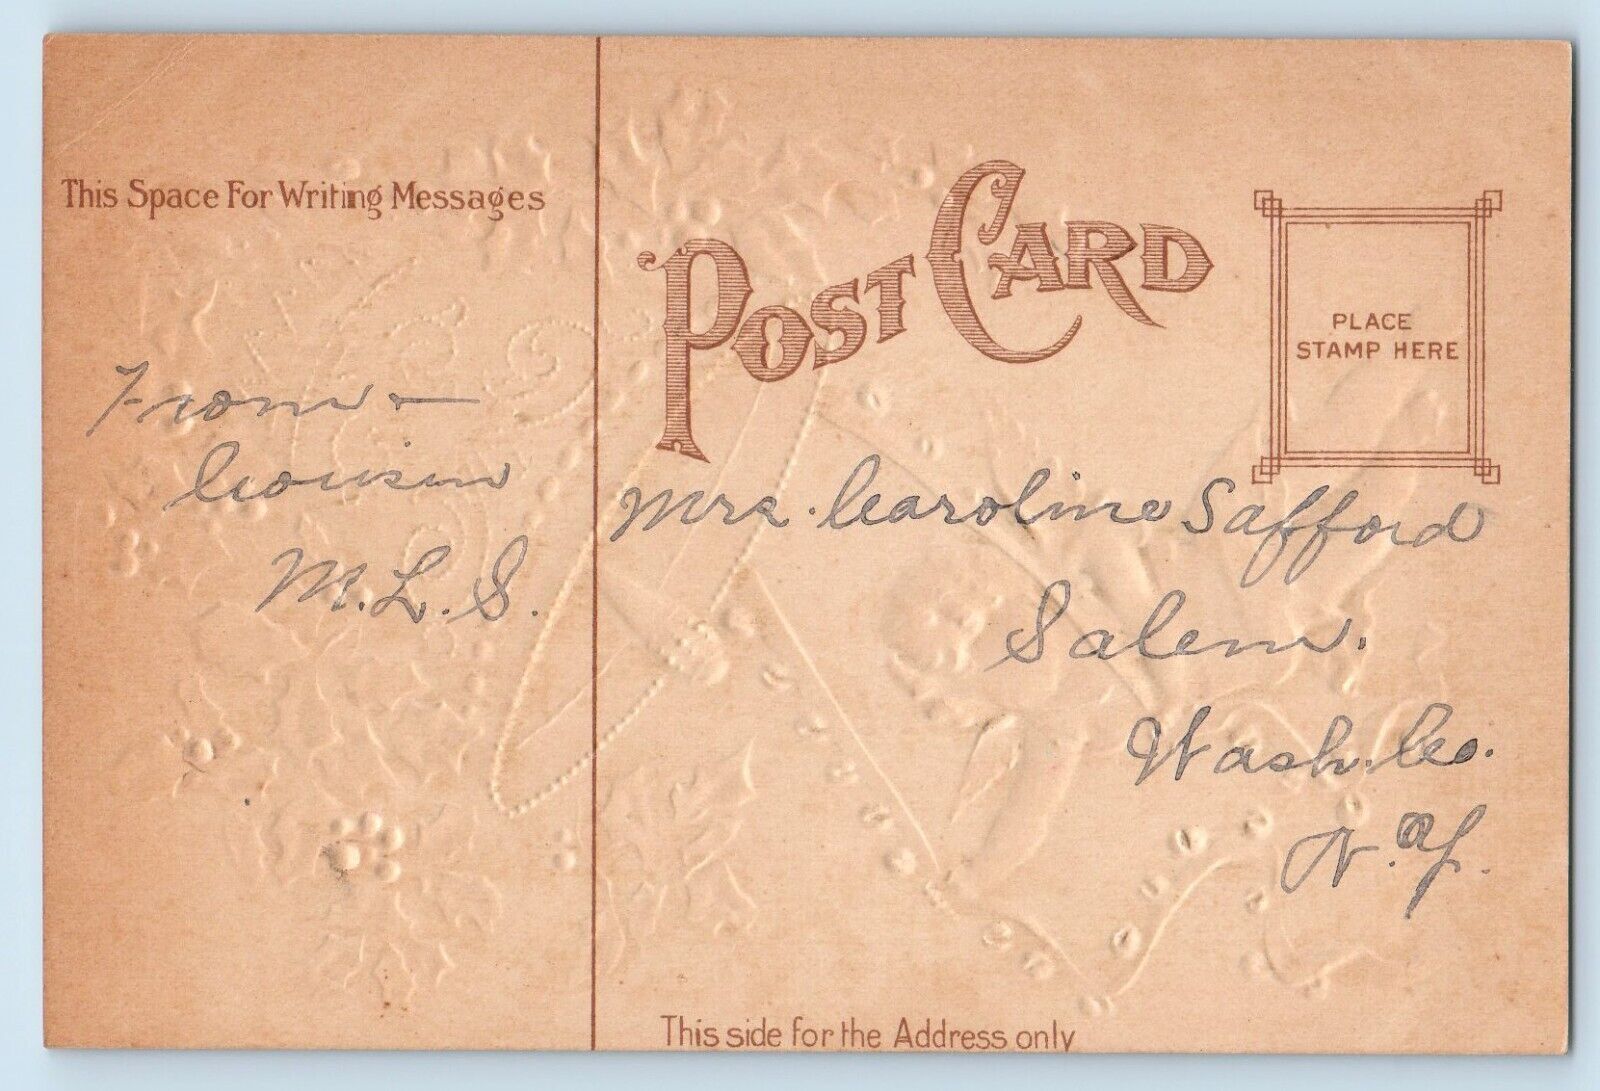 This Space For Writing Messages
From -
Cousin
M. L. S.
POST CARD
PLACE
STAMP HERE
Mrs. Caroline Safford
Salem.
Wash. Co.
N. Y.
This side for the Address only